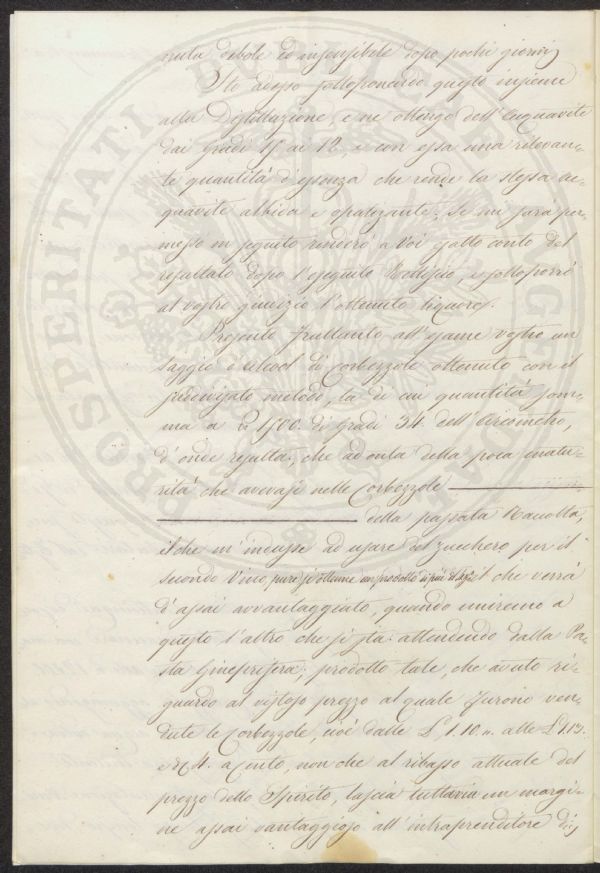 nuta debole ed insensibile dopo pochi giorni;
Sto adesso sottoponendo questo insieme
alla Distillazione, e ne ottengo dell'Acquavite
dai gradi 11 ai 12, e con essa una rilevan-
te quantità d'essenza che rende la stessa ac-
quavite albida e opalizzante; Se mi sarà per-
messo in seguito renderò a Voi esatto conto del
resultato dopo l'eseguito Rettificio, e sottoporrò
al vostro giudizio l'ottenuto liquore.
Presento frattanto all'esame vostro un
saggio d'alcool di Corbezzole ottenuto con il
predivisato metodo, la di cui quantità som-
ma a 1500. di gradi 34. dell'Areometro,
d'onde resulta, che ad onta della poca matu-
rità che avevasi nelle Corbezzole
della passata Raccolta,
il che m'indusse ad usare del zucchero per il
secondo Vino, pure si ottenne un prodotto di più di il che verrà
d'assai avvantaggiato, quando uniremo a
questo l'altro che si sta attendendo dalla Pa-
sta Gineprifera; prodotto tale, che avuto ri-
guardo al vistoso prezzo al quale furono ven-
dute le Corbezzole, cioè dalle £ 1.10.,, alle £ 1.13.
4. a Cento, non che al ribasso attuale del
prezzo dello Spirito, lascia tuttavia un margi-
ne assai vantaggioso all'intraprenditore di;
PROSPERITATI PUBLICAE